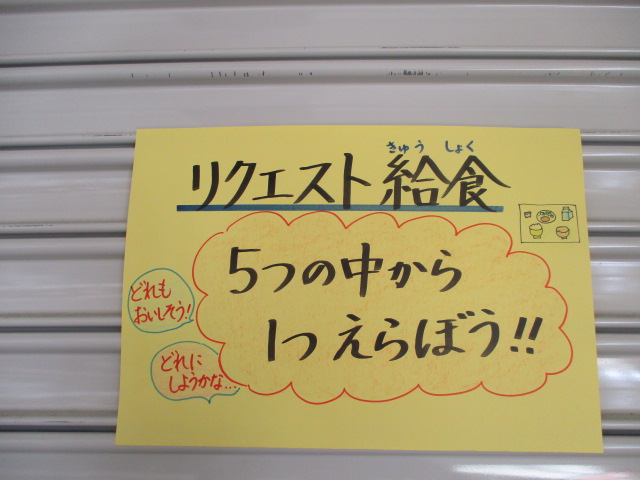 きゅう しょく
リクエスト給食
5つの中から
1つえらぼう!!
どれも
おいしそう!
どれに
しようかな…